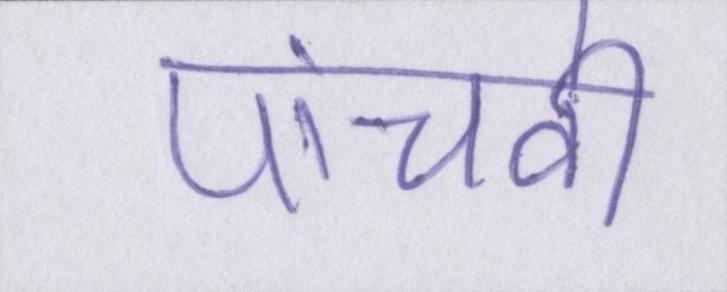 पांचवी